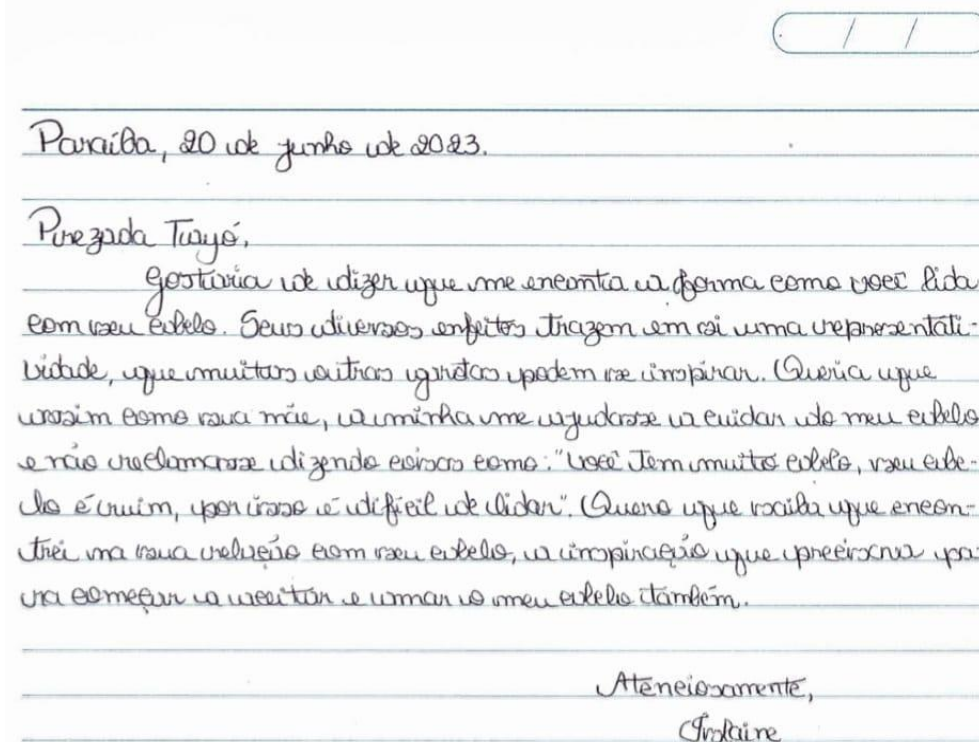 / /
Paraíba, 20 de junho de 2023.
Prezada Tayó,
Gostaria de dizer que me encanta a forma como você lida
com seu cabelo. Seus diversos enfeites trazem em si uma representati-
vidade, que muitas outras garotas podem se inspirar. Queria que
assim como sua mãe, a minha me ajudasse a cuidar do meu cabelo
e não reclamasse dizendo coisas como: "você tem muito cabelo, seu cabe-
lo é ruim, por isso é difícil de lidar". Quero que saiba que encon-
trei na sua relação com seu cabelo, a inspiração que precisava pa
ra começar a aceitar e amar o meu cabelo também.
Atenciosamente,